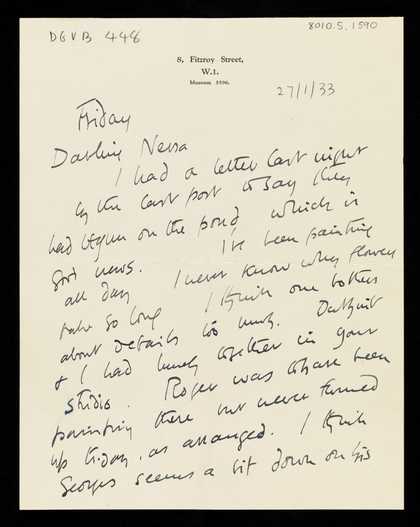 DGVB 448
8010.5.1590
8, Fitzroy Street,
W.1.
Museum 3596.
27/1/33
Friday
Darling Nessa
I had a letter last night
by the last post to say they
had begun on the pond which is
good news. I've been painting
all day I never know why flowers
take so long I think one bothers
about details too much.
& I had lunch together in your
studio. Roger was to have been
painting there but never turned
up to.day, as arranged. I think
Georges seems a bit down on his